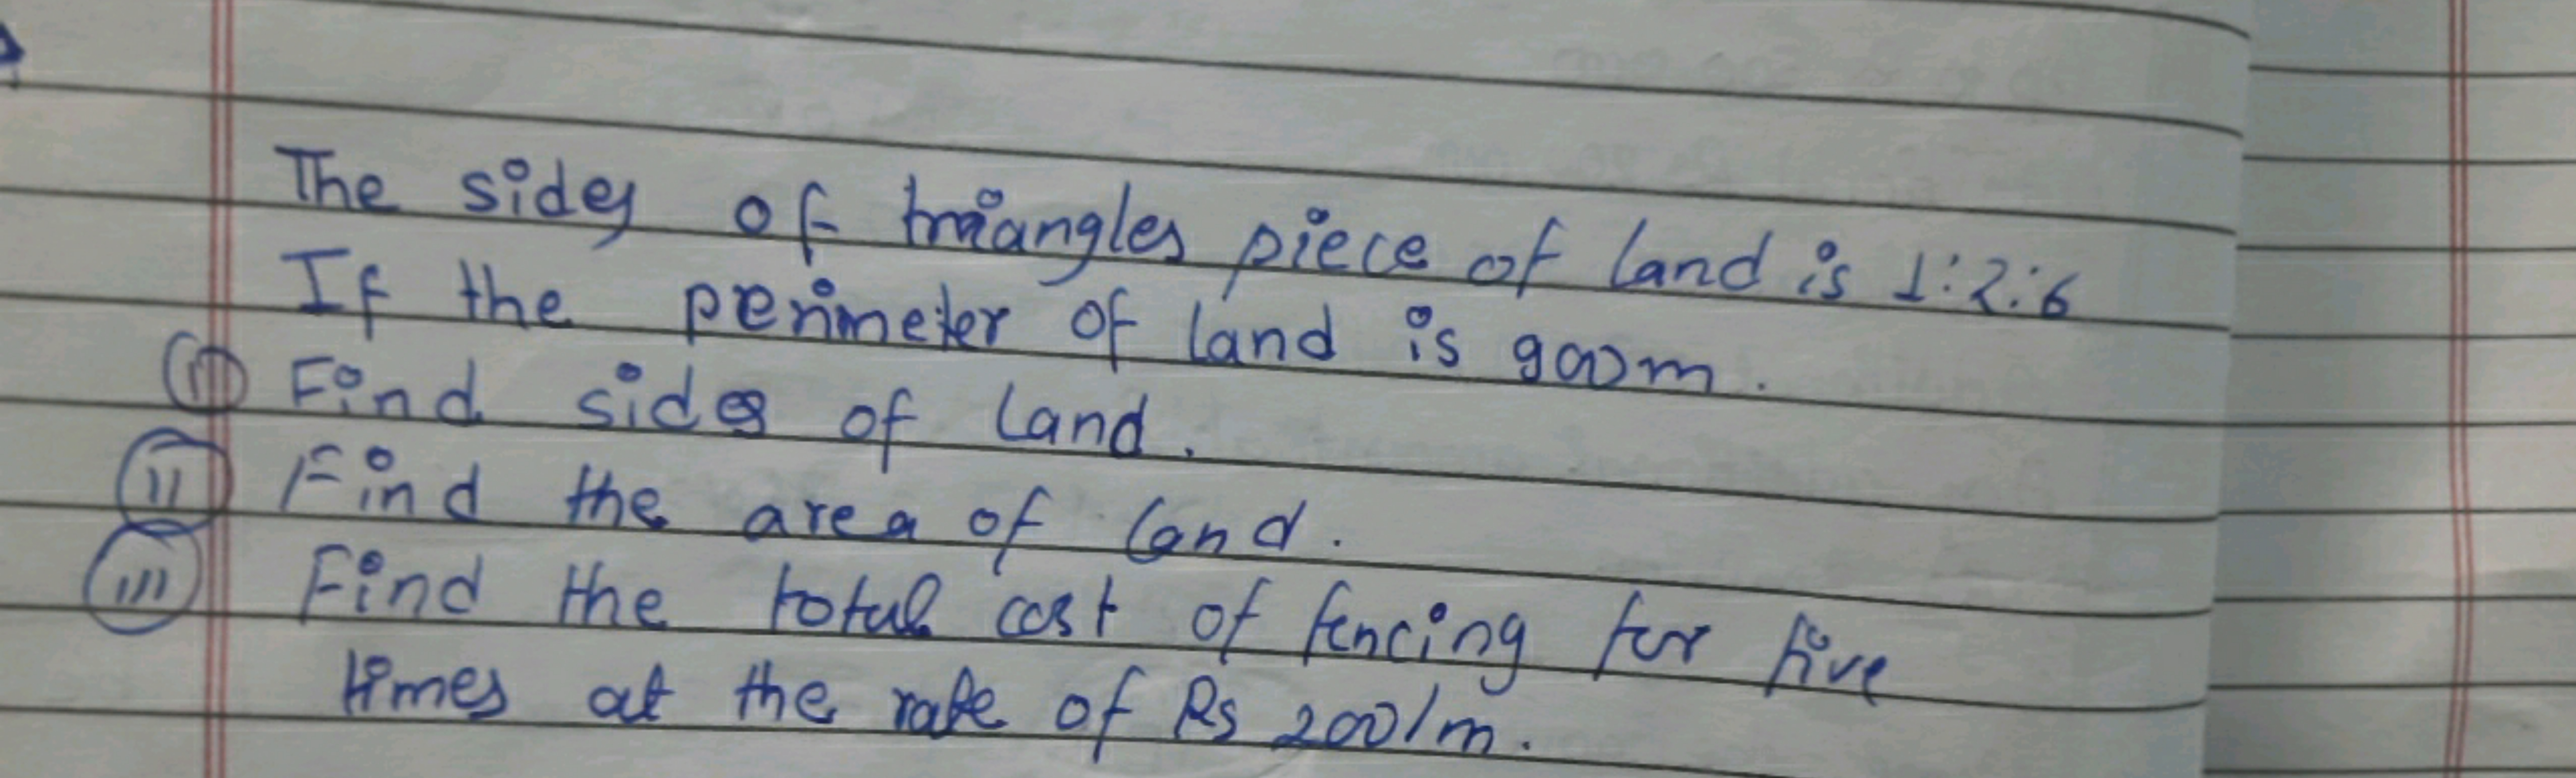 The sides of triangles piece of land is 1:2:6
If the perimeter of land is 900m.
(i) Find sides of land.
(ii) Find the area of land.
(iii) Find the total cost of fencing for five
times at the rate of Rs 200/m.